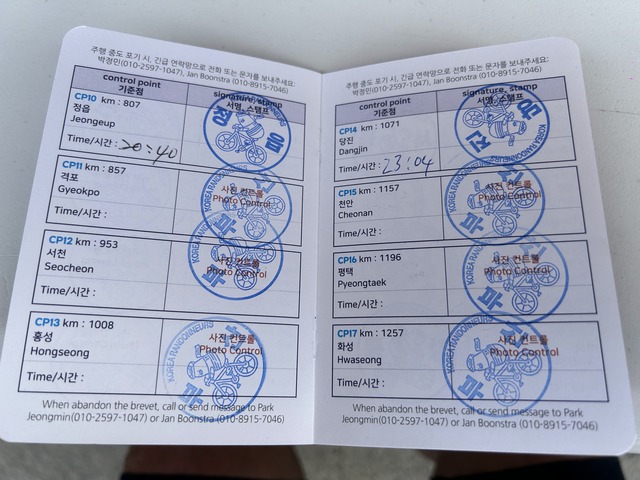 주행 중도 포기 시, 긴급 연락망으로 전화 또는 문자를 보내주세요:
박정민(010-2597-1047), Jan Boonstra (010-8915-7046)
control point
기준점
signature, stamp
서명, 스탬프
CP10 km : 807
정읍
Jeongeup
Time/시간 : 20:40
정읍
CP11 km : 857
격포
Gyeokpo
Time/시간 :
사진 컨트롤
Photo Control
KOREA RANDONNEURS
CP12 km : 953
서천
Seocheon
Time/시간 :
사진 컨트롤
Photo Control
CP13 km : 1008
홍성
Hongseong
Time/시간 :
사진 컨트롤
Photo Control
KOREA RANDONNEURS
When abandon the brevet, call or send message to Park
Jeongmin(010-2597-1047) or Jan Boonstra (010-8915-7046)
주행 중도 포기 시, 긴급 연락망으로 전화 또는 문자를 보내주세요:
박정민(010-2597-1047), Jan Boonstra (010-8915-7046)
control point
기준점
signature, stamp
서명, 스탬프
CP14 km : 1071
당진
Dangjin
Time/시간 : 23:04
KOREA RANDONNEURS
CP15 km : 1157
천안
Cheonan
Time/시간 :
사진 컨트롤
Photo Control
KOREA RANDONNEURS
CP16 km : 1196
평택
Pyeongtaek
Time/시간 :
사진 컨트롤
Photo Control
CP17 km : 1257
화성
Hwaseong
Time/시간 :
사진 컨트롤
Photo Control
KOREA RANDONNEURS
When abandon the brevet, call or send message to Park
Jeongmin(010-2597-1047) or Jan Boonstra (010-8915-7046)